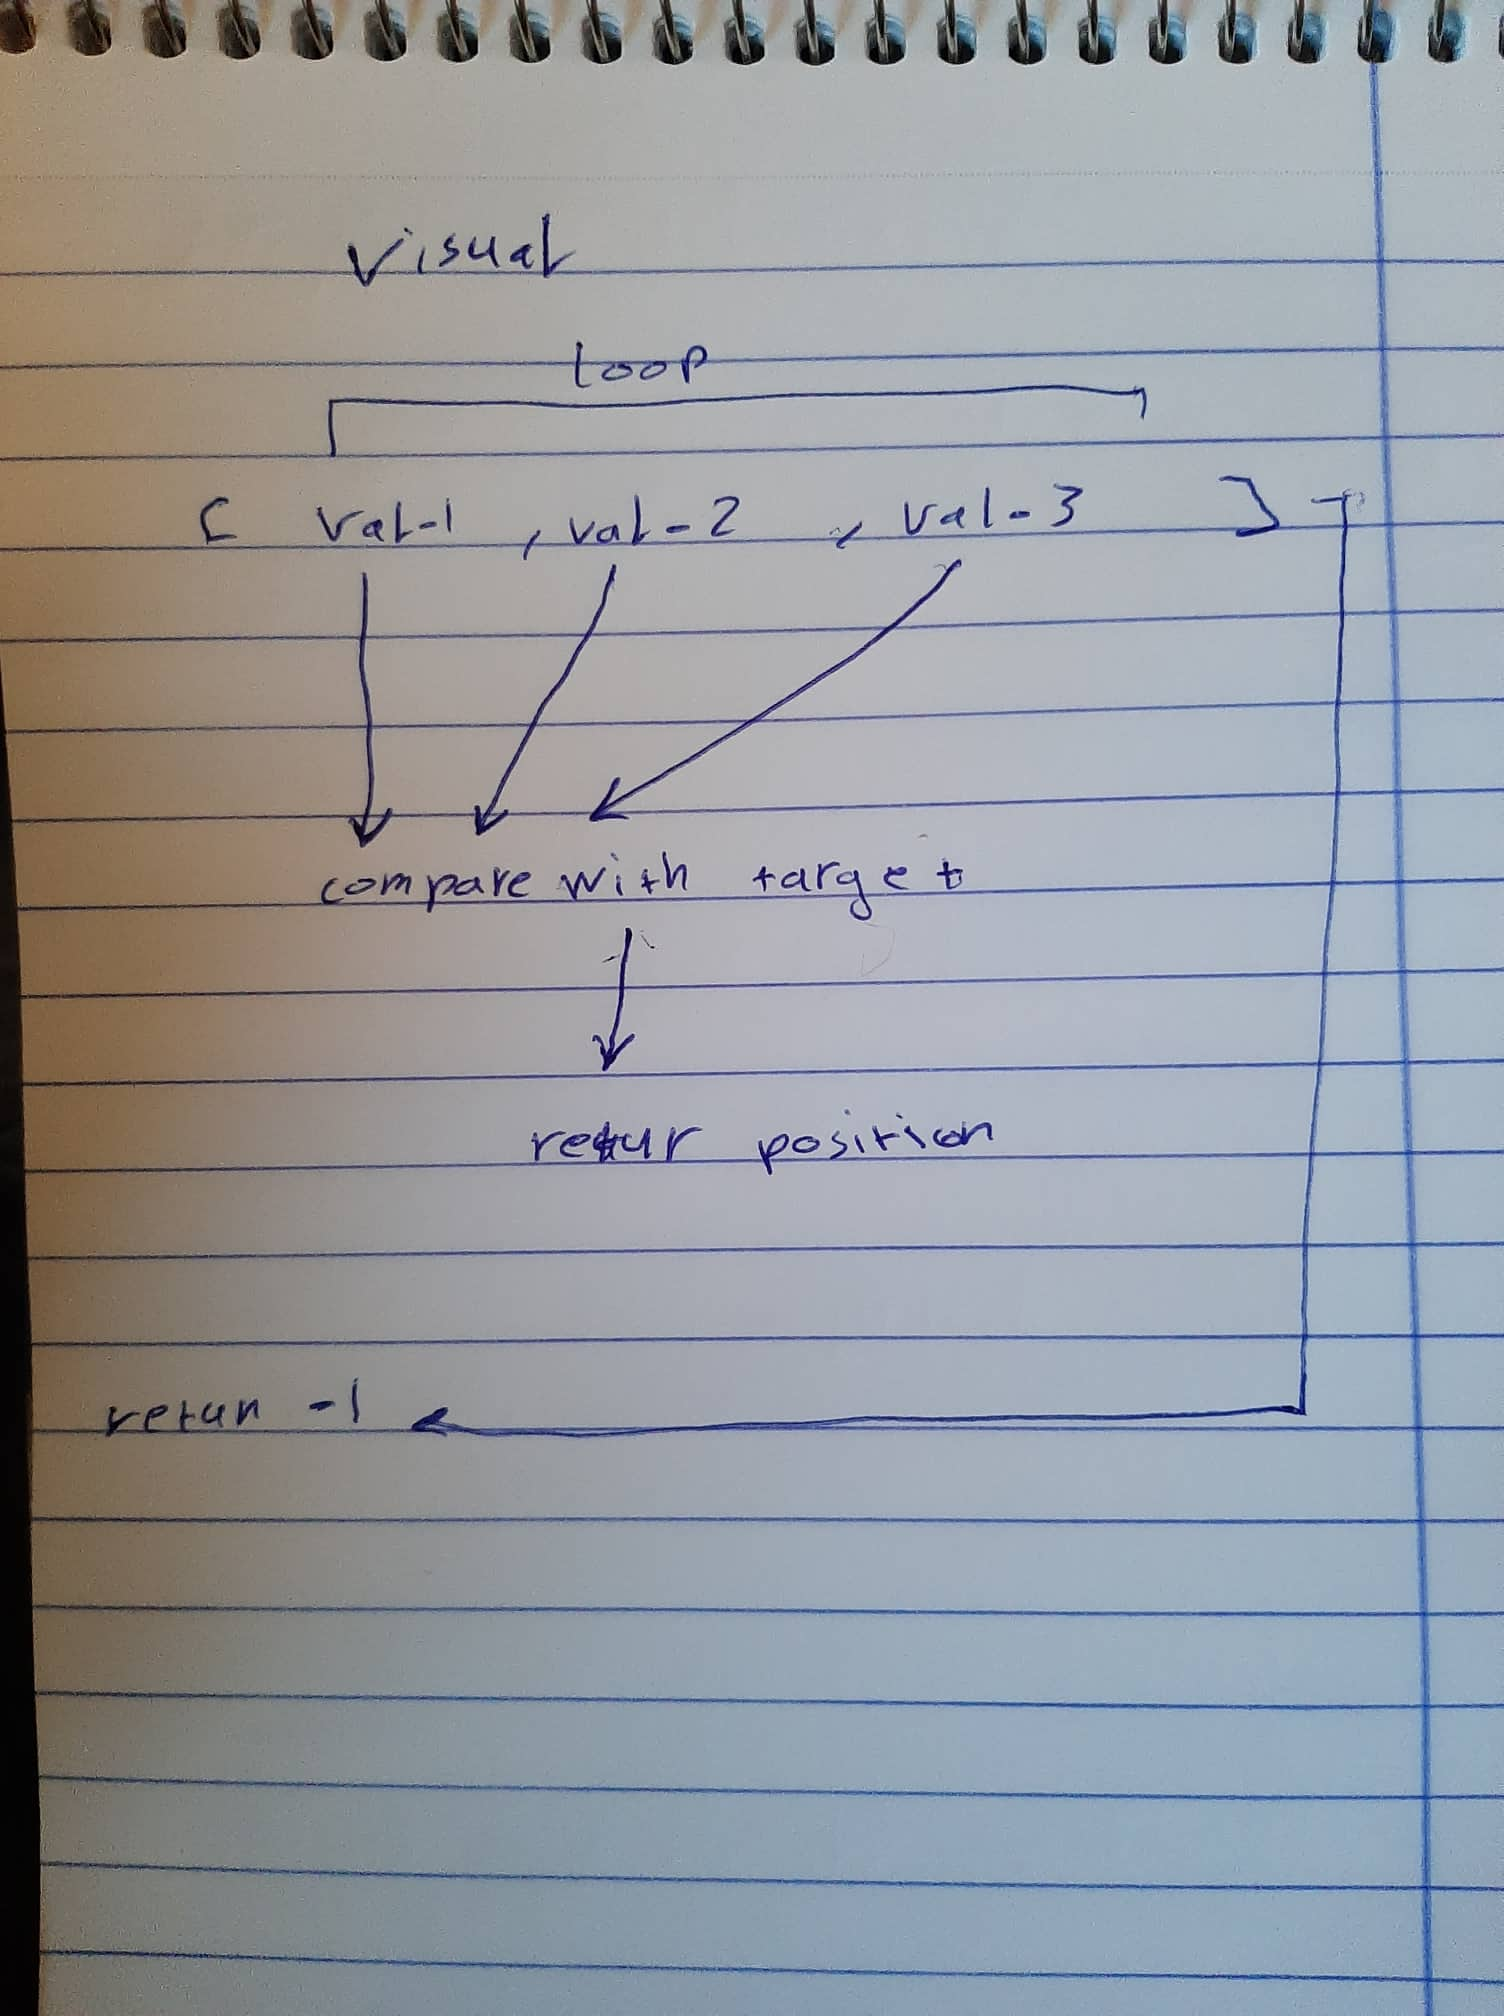 visual
loop
[ val-1 , val-2 , val-3 ]
compare with target
retur position
retun -1